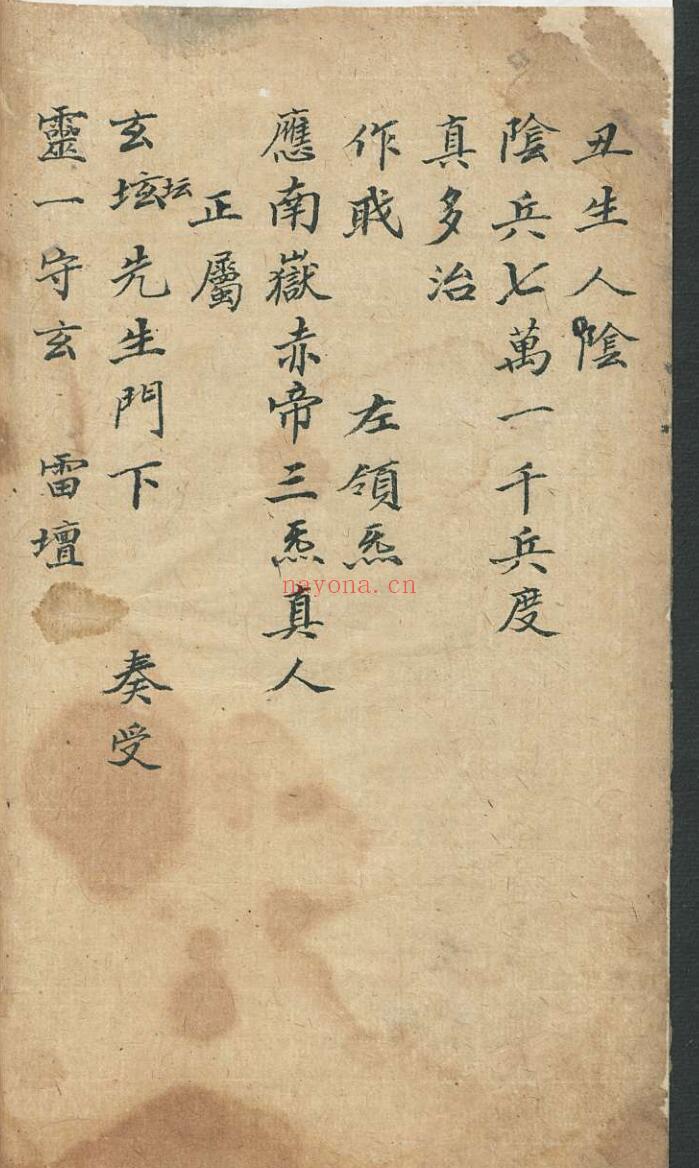 丑生人陰
陰兵七萬一千兵度
真多治
作戝 左領炁
應南嶽赤帝三炁真人
正屬
玄坛先生門下 奏受
靈一守玄 雷壇
nayona.cn